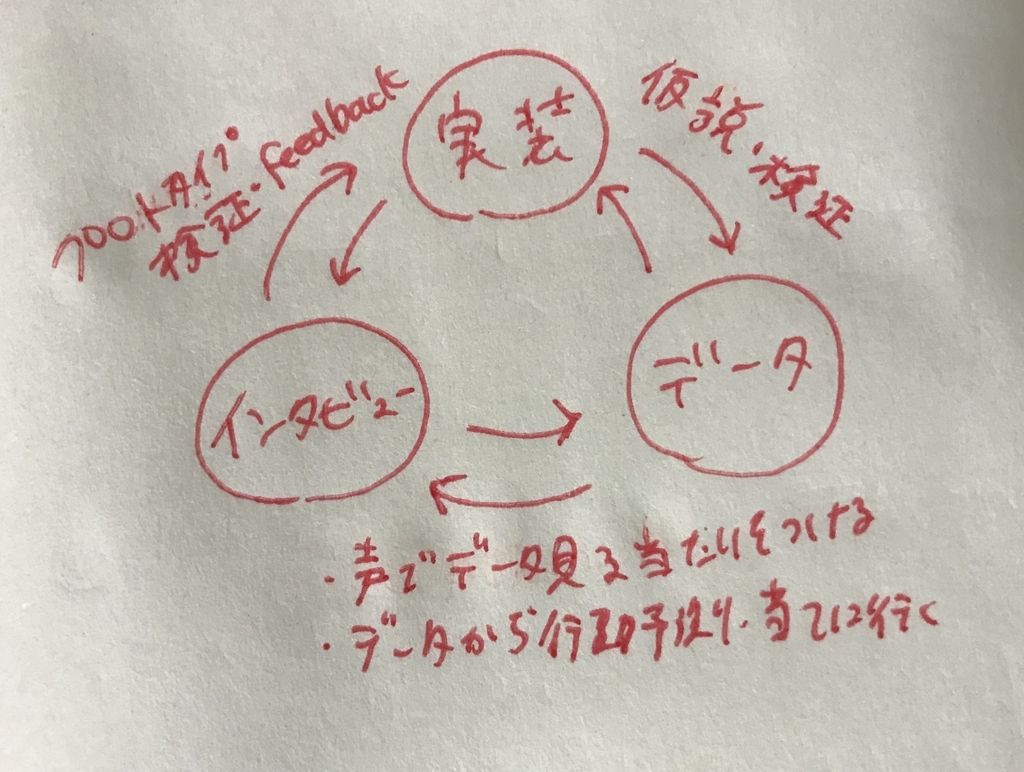 実装
仮説・検証
プロトタイプ
検証・feedback
インタビュー
データ
・声でデータ見る当たりをつける
・データから行動予測し、当てに行く